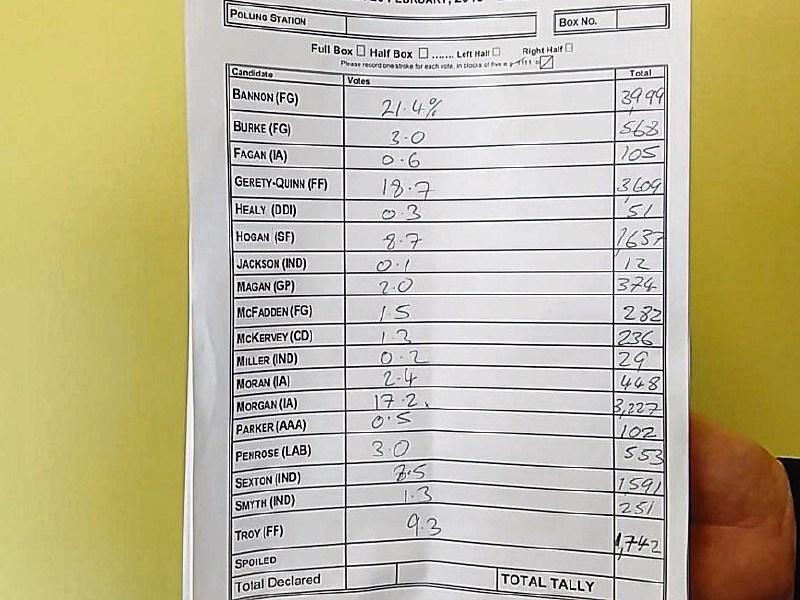 POLLING STATION
BOX NO.
Full Box Half Box ....... Left Half Right Half
Please record one stroke for each vote, in blocks of five
Candidate Votes Total
BANNON (FG) 21.4% 3,999
BURKE (FG) 3.0 568
FAGAN (IA) 0.6 105
GERETY-QUINN (FF) 18.7 3,609
HEALY (DDI) 0.3 51
HOGAN (SF) 8.7 1,637
JACKSON (IND) 0.1 12
MAGAN (GP) 2.0 374
MCFADDEN (FG) 1.5 282
MCKERVEY (CD) 1.3 236
MILLER (IND) 0.2 29
MORAN (IA) 2.4 448
MORGAN (IA) 17.2 3,227
PARKER (AAA) 0.5 102
PENROSE (LAB) 3.0 553
SEXTON (IND) 8.5 1591
SMYTH (IND) 1.3 251
TROY (FF) 9.3 1,742
SPOILED
Total Declared TOTAL TALLY